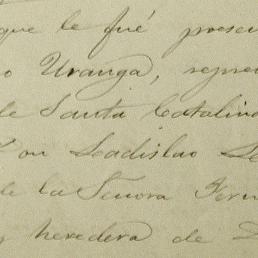 que le fué presen
o Uranga, repre
de Santa Catalina
Don Ladislao
de la Señora Fern
y heredera de D